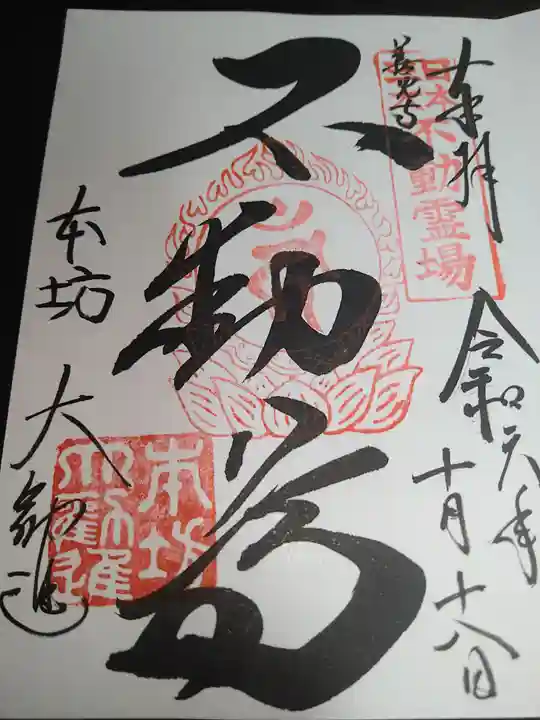 奉拝
令和元年
十月十八日
善光寺
日本不動霊場
不動尊
本坊 大勧進
本坊
大勸進